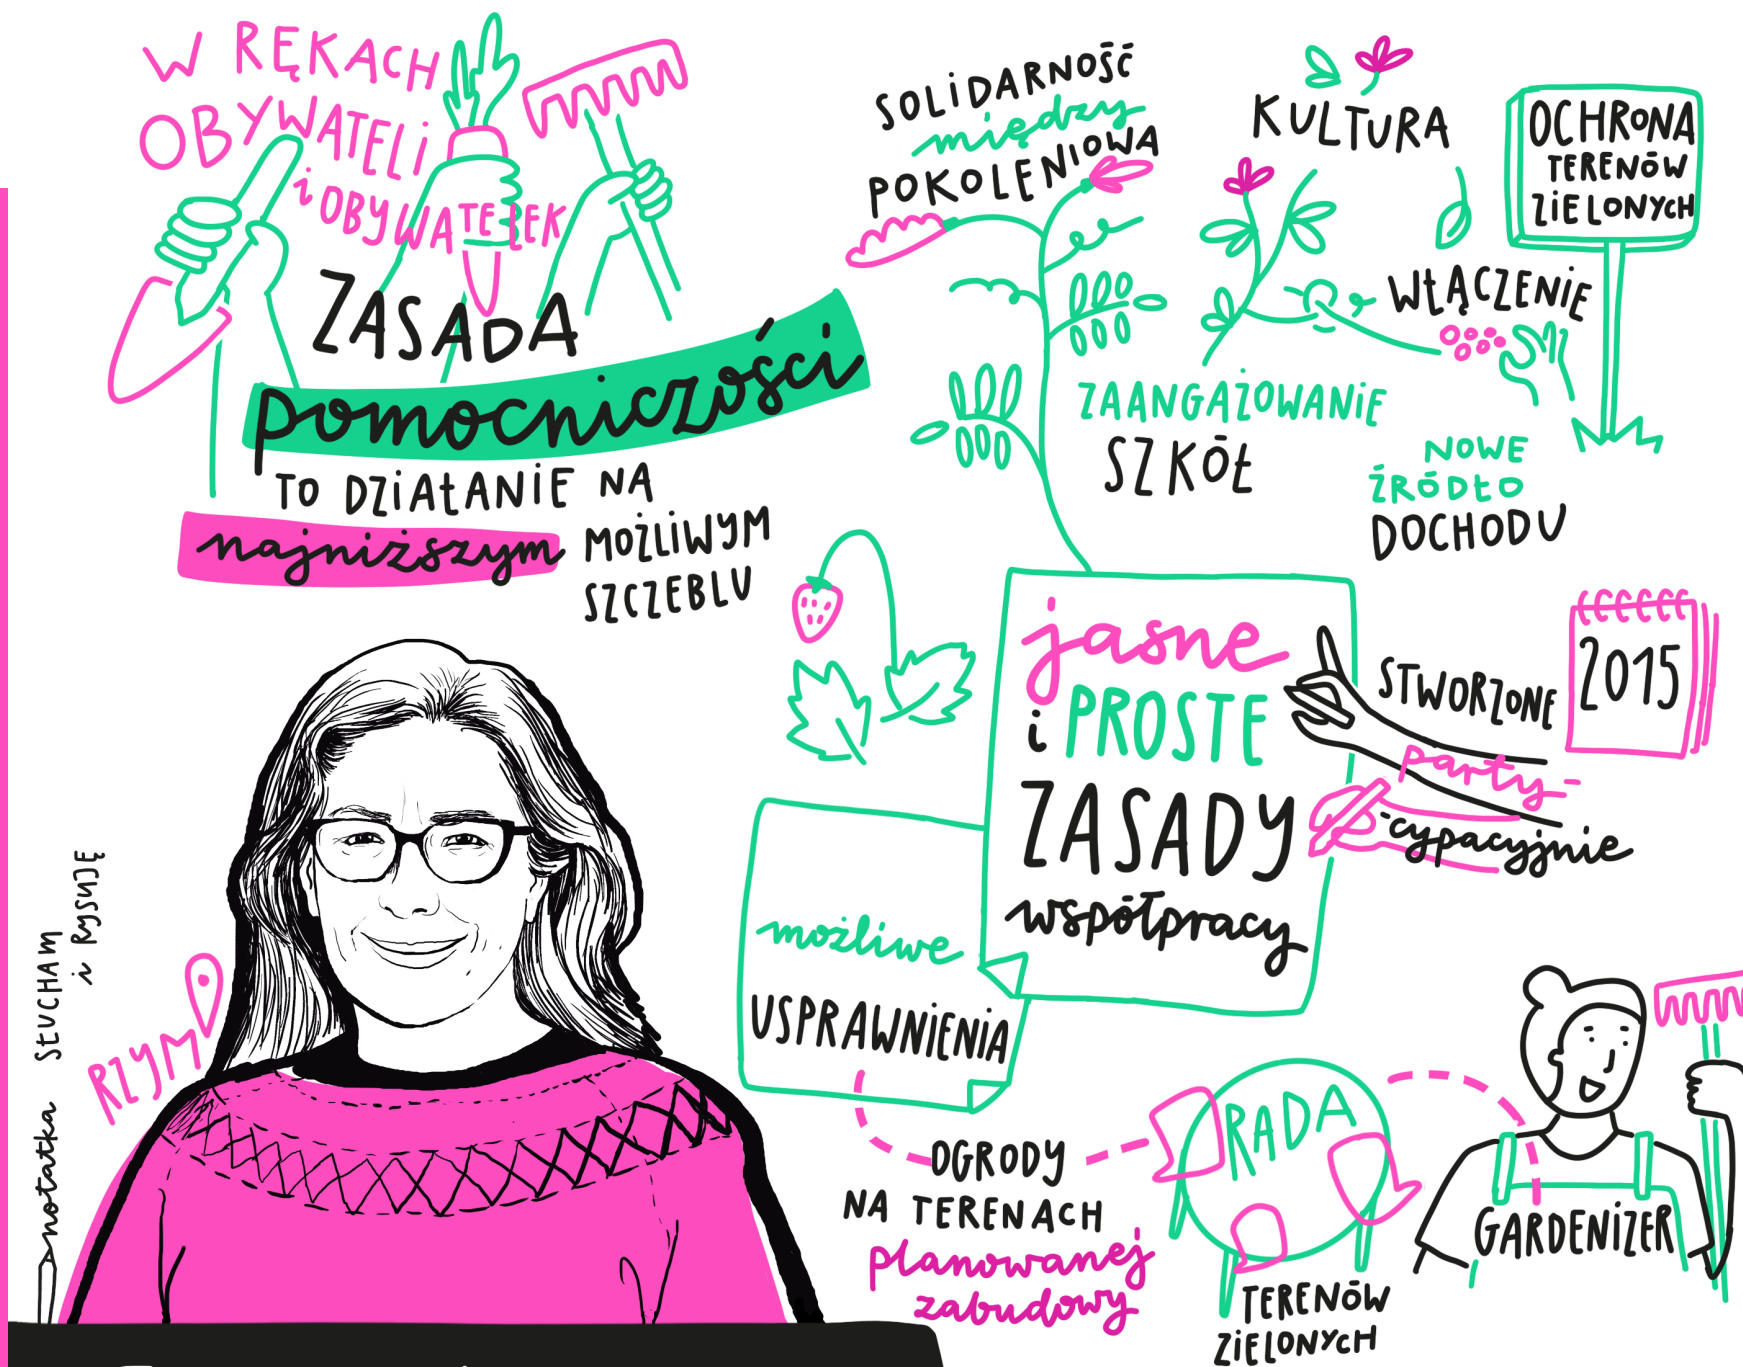 W RĘKACH
OBYWATELI
i OBYWATELEK
ZASADA
pomocniczości
TO DZiAŁANiE NA
najniższym MOŻLiWYM
SZCZEBLU
SOLiDARNOŚĆ
między
POKOLENIOWA
KULTURA
OCHRONA
TERENÓW
ZiELONYCH
WŁĄCZENiE
ZAANGAŻOWANiE
SZKÓŁ
NOWE
ŹRÓDŁO
DOCHODU
jasne
i PROSTE
ZASADY
współpracy
STWORZONE
party-
-cypacyjnie
2015
możliwe
USPRAWNiENiA
OGRODY
NA TERENACH
planowanej
zabudowy
RADA
TERENÓW
ZiELONYCH
GARDENiZER
RZYM
notatka SŁUCHAM
i RYSUJĘ